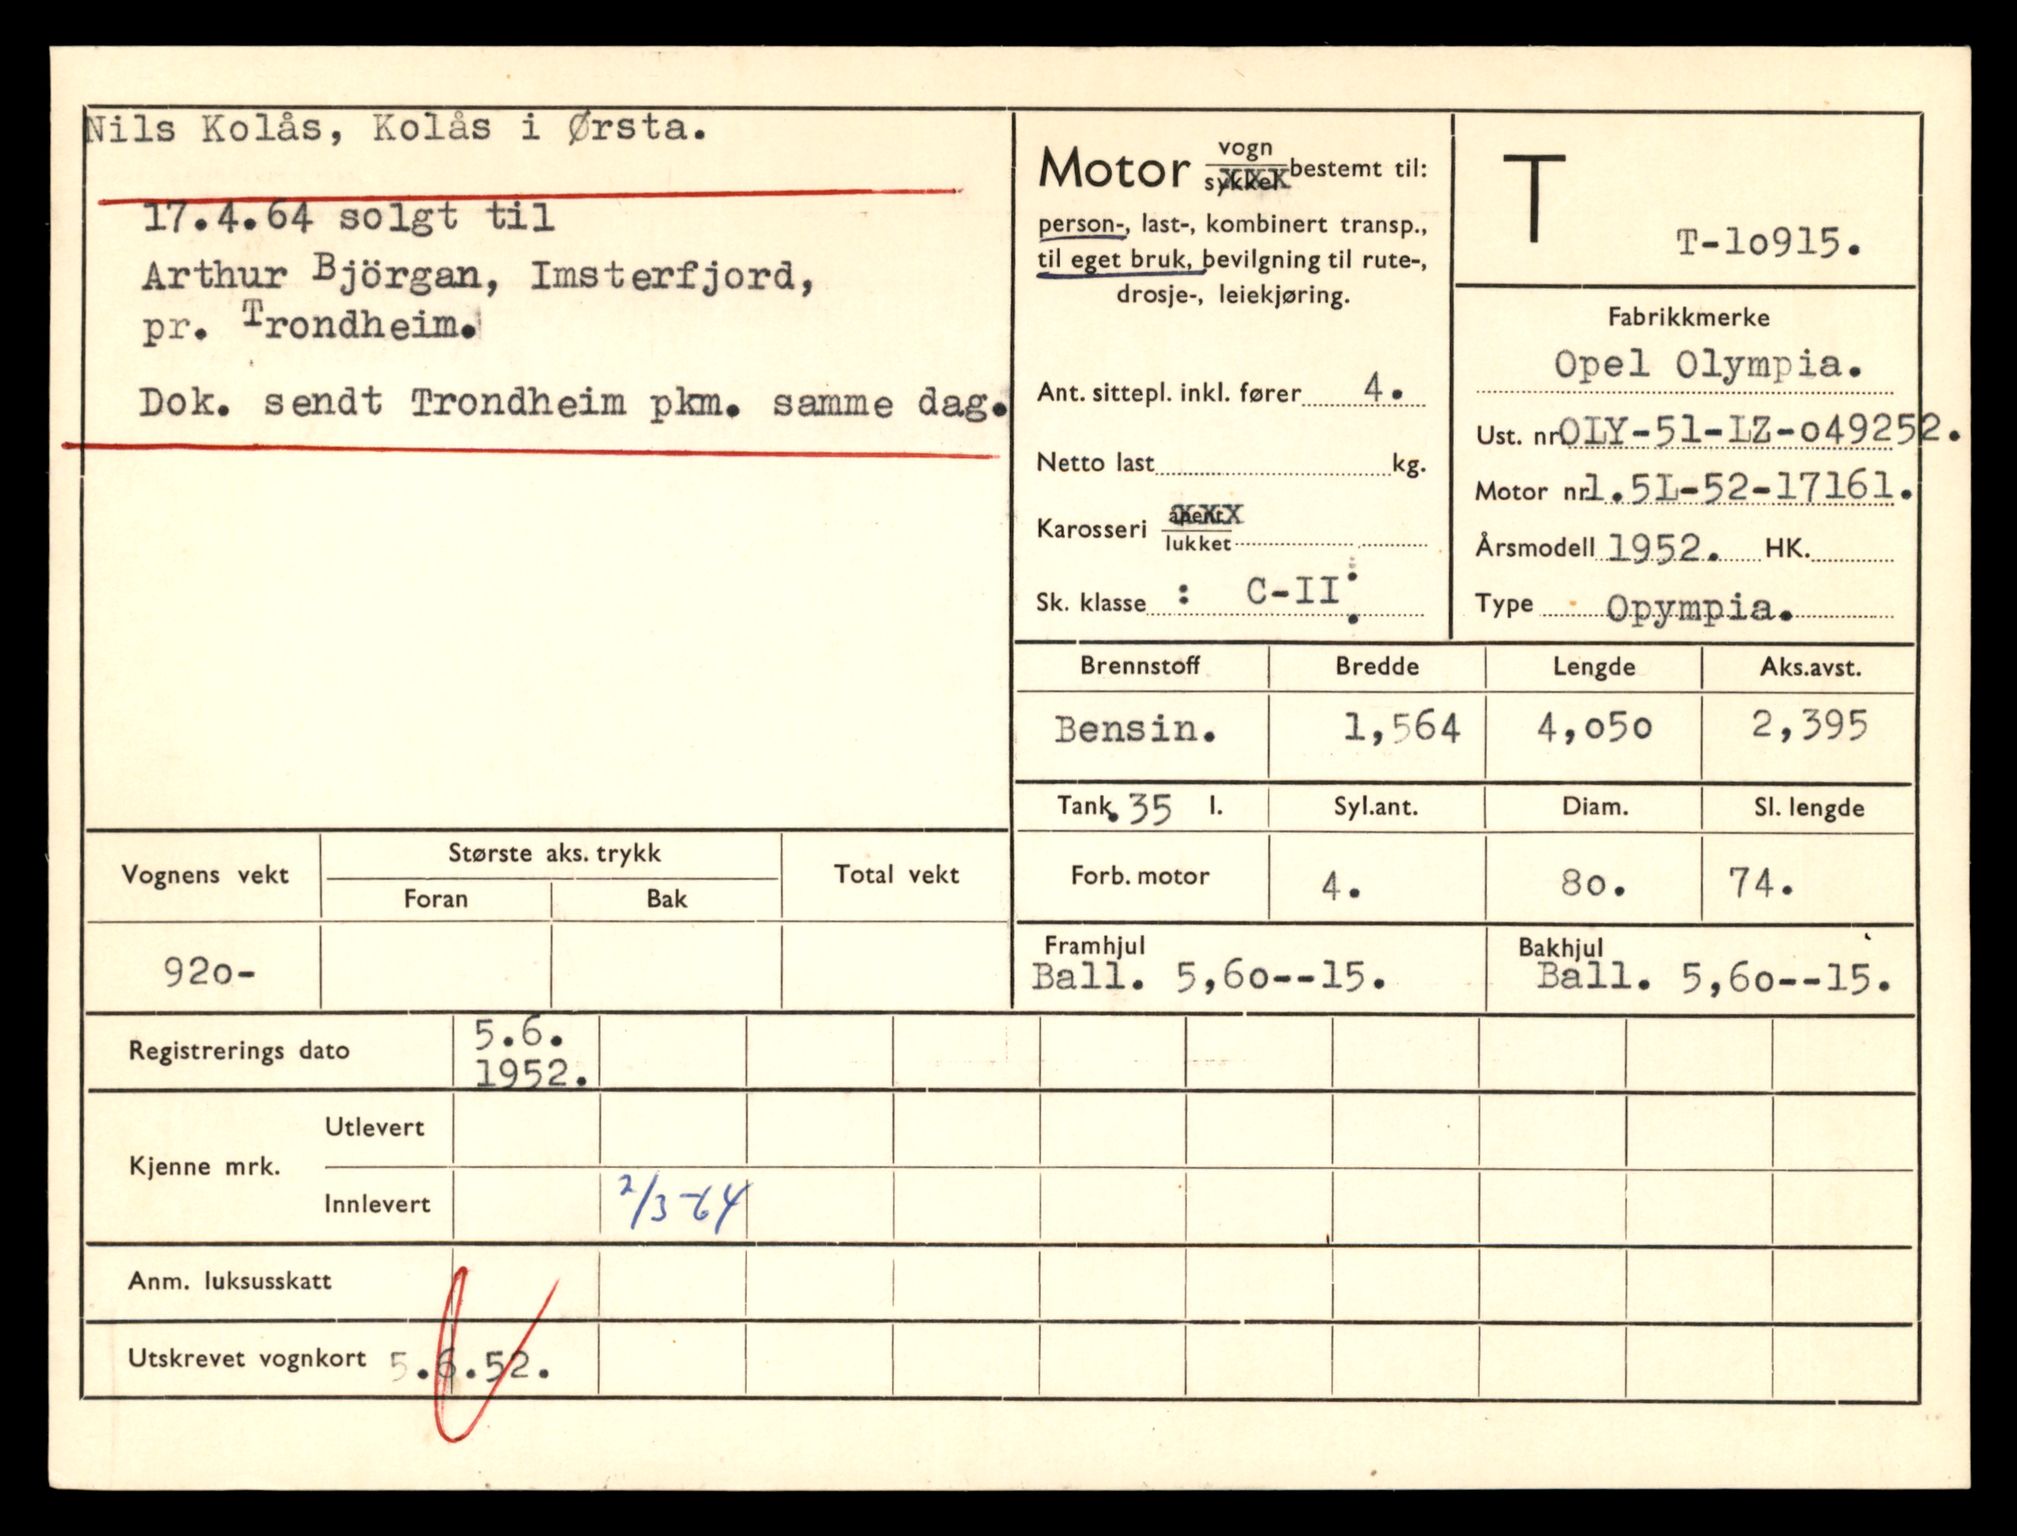 Nils Kolås, Kolås i Ørsta.
17.4.64 solgt til
Arthur Björgan, Imsterfjord,
pr. Trondheim.
Dok. sendt Trondheim pkm. samme dag.
Motor vogn bestemt til:
sykkel
person-, last-, kombinert transp.,
til eget bruk, bevilgning til rute-,
drosje-, leiekjøring.
Ant. sittepl. inkl. fører 4.
Netto last kg.
Karosseri åpent
lukket
Sk. klasse : C-II:
T
T-lo915.
Fabrikkmerke
Opel Olympia.
Ust. nr. OLY-51-LZ-o49252.
Motor nr. 1.5L-52-17161.
Årsmodell 1952. HK.
Type Opympia.
Brennstoff Bredde Lengde Aks.avst.
Bensin. 1,564 4,o5o 2,395
Tank. 35 l. Syl.ant. Diam. Sl. lengde
Forb. motor 4. 8o. 74.
Framhjul Bakhjul
Ball. 5,6o--15. Ball. 5,6o--15.
Vognens vekt Største aks. trykk Total vekt
Foran Bak
92o-
Registrerings dato 5.6.
1952.
Kjenne mrk. Utlevert
Innlevert 2/3-64
Anm. luksusskatt
Utskrevet vognkort 5.6.52.